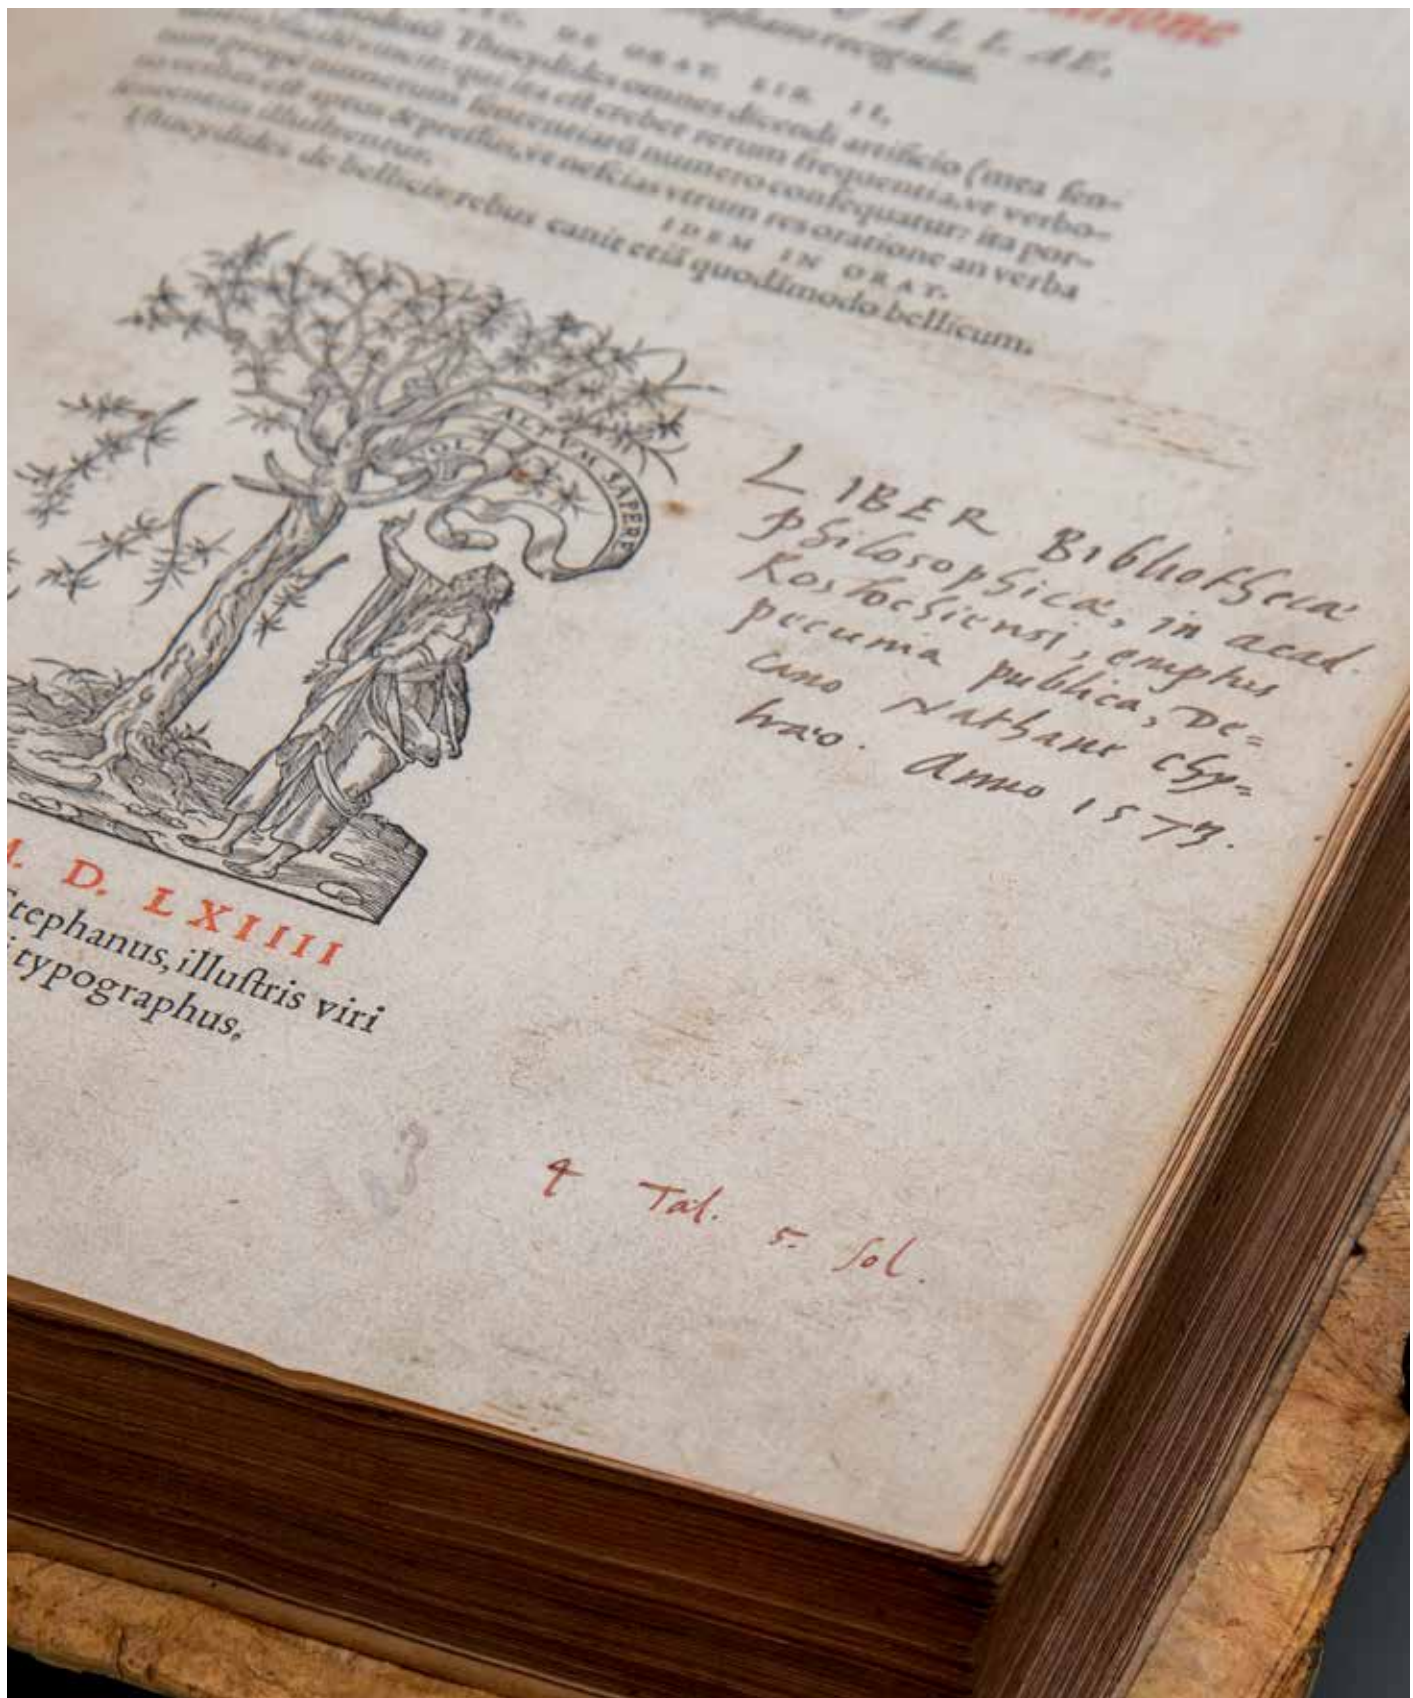 ALLAE,
CIC. DE ORAT. LIB. II.
Thucydides omnes dicendi artificio (mea sen-
vincit: qui ita est creber rerum frequentia, vt verbo-
rum prope numerum sententiarũ numero consequatur: ita por-
ro verbis est aptus & pressus, vt nescias vtrum res oratione an verba
sententiis illustrentur.
IDEM IN ORAT.
Thucydides de bellicis rebus canit etiã quodãmodo bellicum.
NOLI ALTVM SAPERE
LIBER Bibliothecae
philosophicae, in acad.
Rostochiensi, emptus
pecunia publica, De=
cano Nathane Chy=
traeo. Anno 1573.
. D. LXIIII
Stephanus, illuſtris viri
typographus.
4 Tal. 5. ſol.